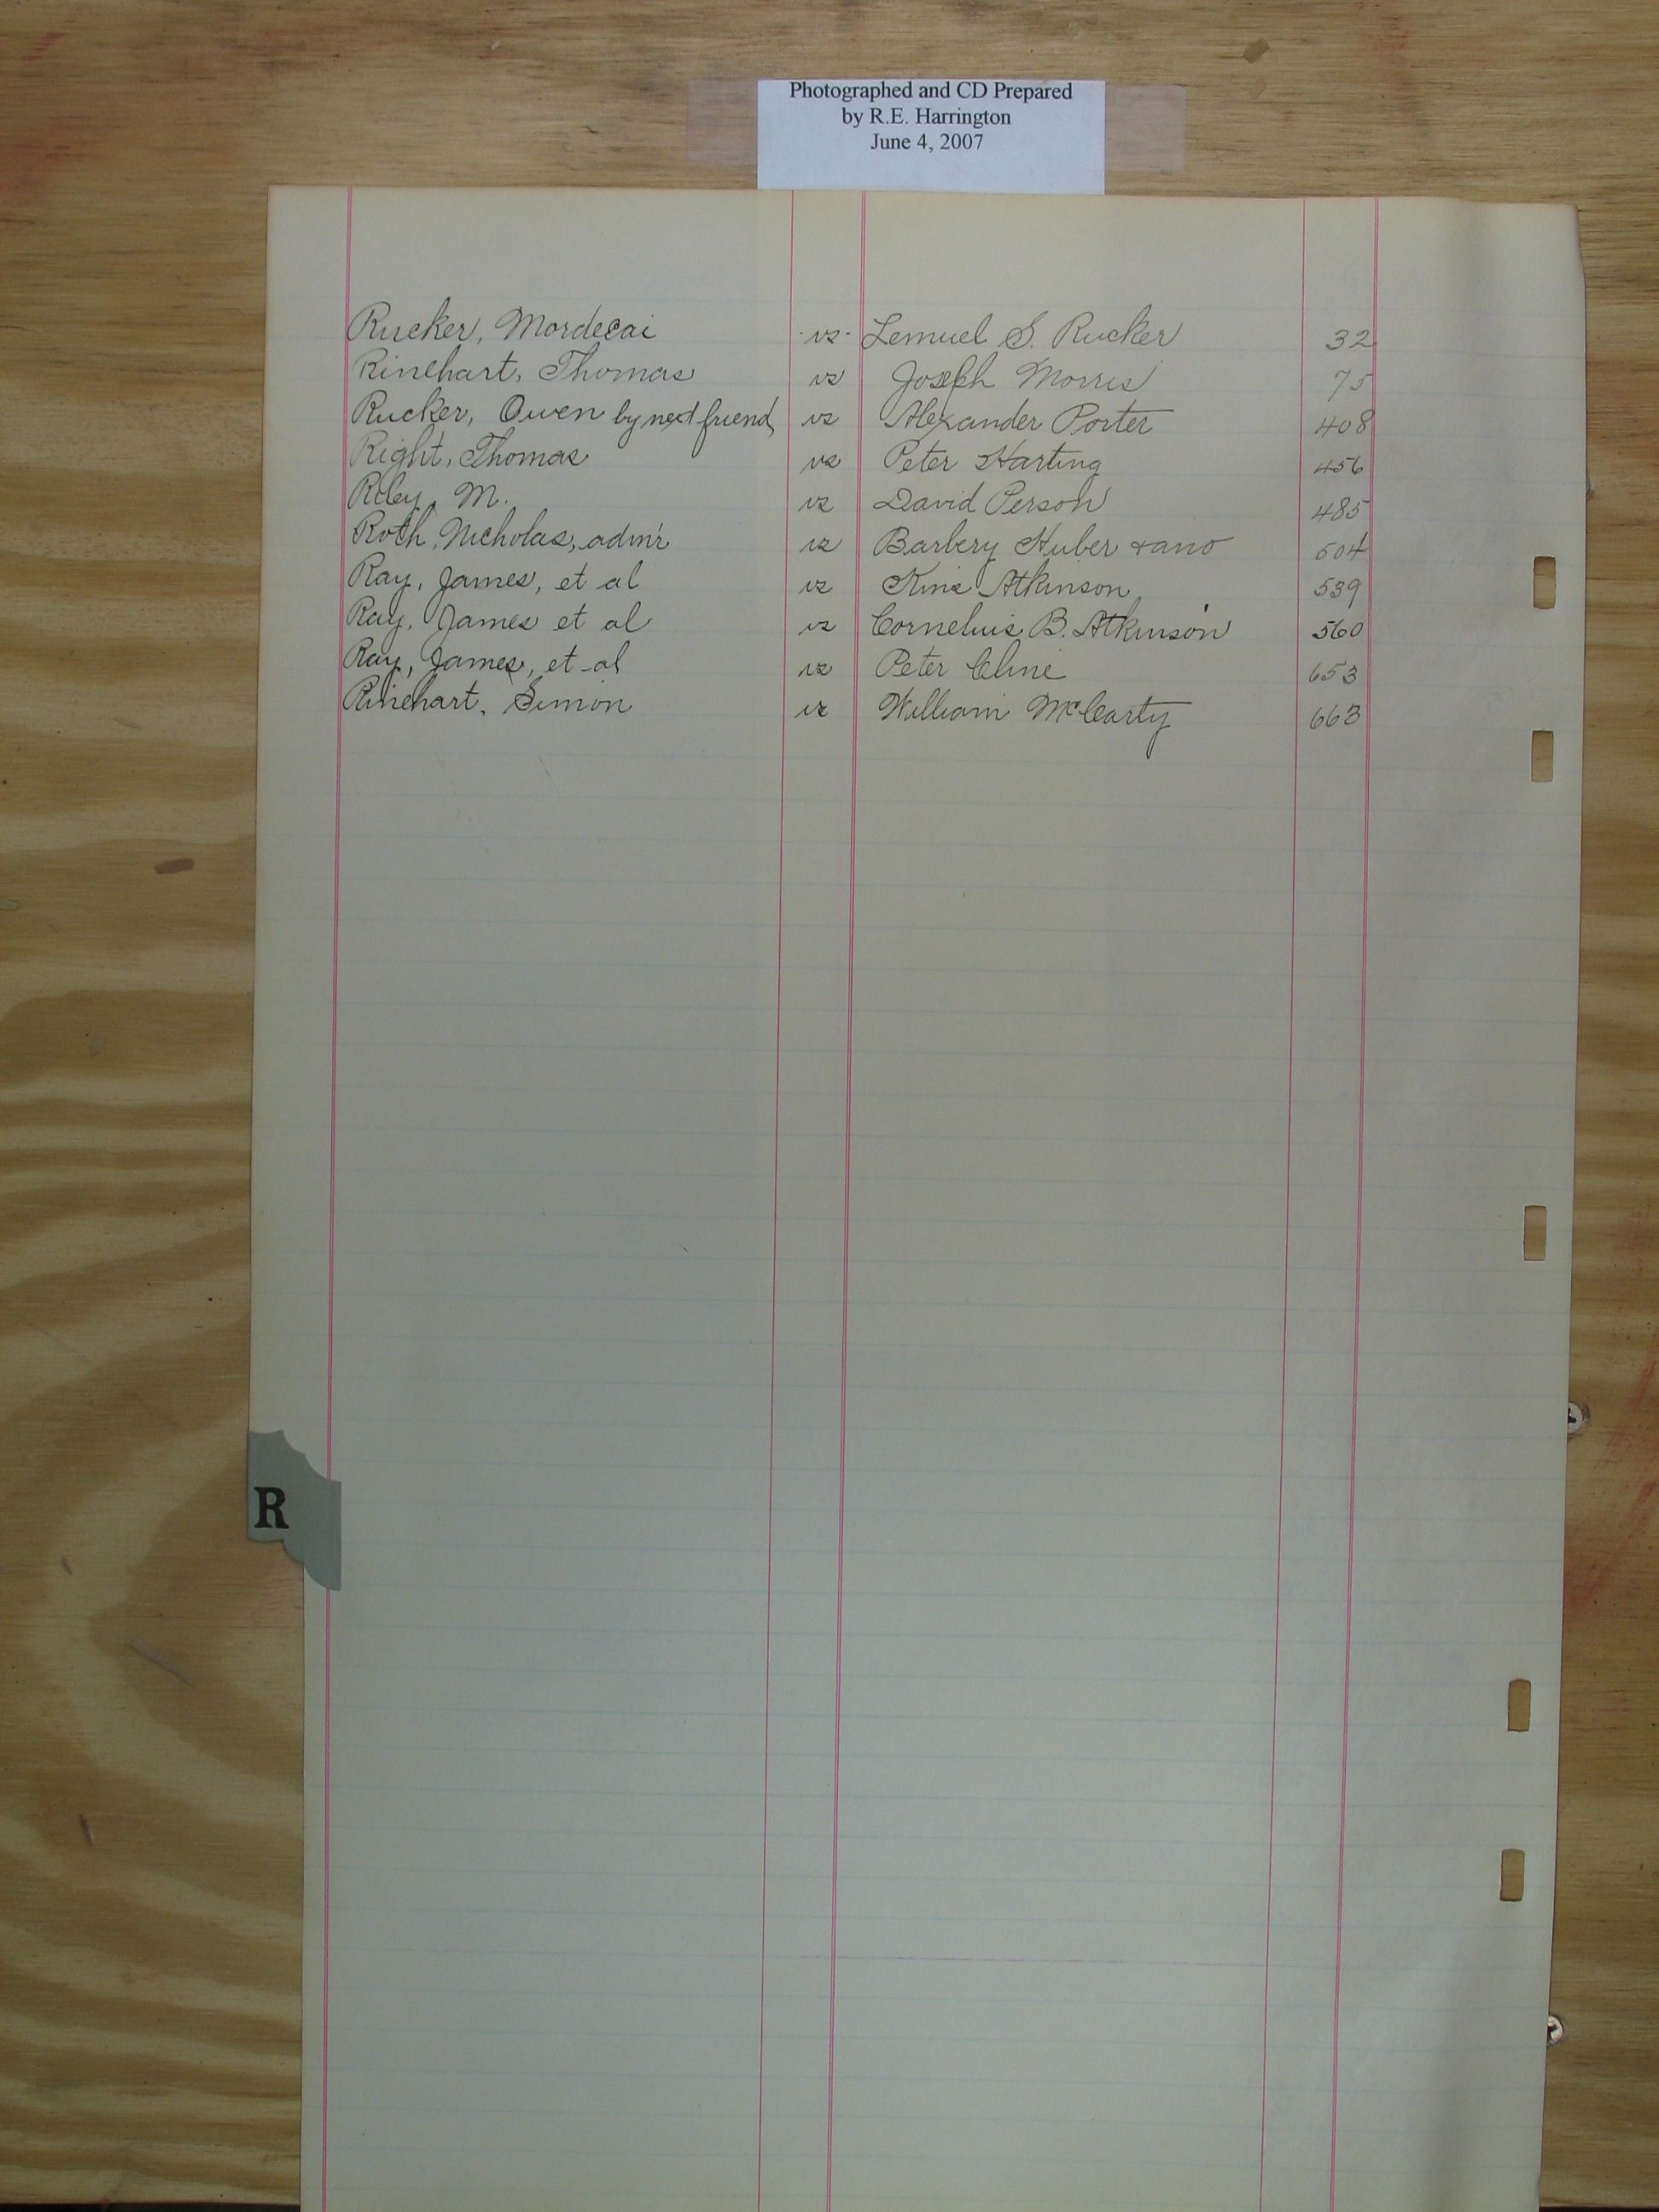 Photographed and CD Prepared
by R.E. Harrington
June 4, 2007
Rucker, Mordecai vs Lemuel S. Rucker 32
Rinehart, Thomas vs Joseph Morris 75
Rucker, Owen by next friend, vs Alexander Porter 408
Right, Thomas vs Peter Harting 456
Riley, M. vs David Person 485
Roth, Nicholas, adm'r vs Barbery Huber & ano 504
Ray, James, et al vs Atkinson 539
Ray, James et al vs Cornelius B. Atkinson 560
Ray, James, et al vs Peter Cline 653
Rinehart, Simon vs William McCarty 663
R